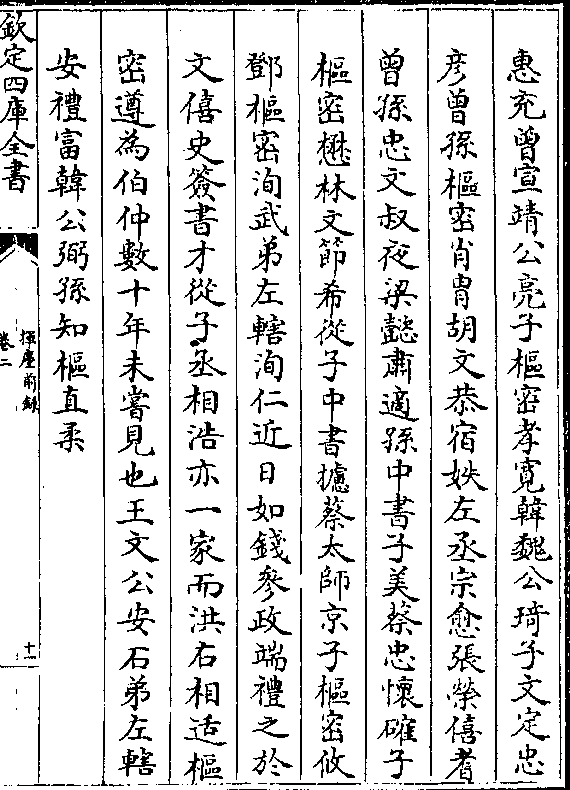 惠充曾宣靖公亮子樞密孝寛韓魏公琦子文定忠
彦曾孫樞密肖胄胡文恭宿姪左丞宗愈張榮僖耆
曾孫忠文叔夜梁懿肅適孫中書子美蔡忠懷確子
樞密懋林文節希從子中書攄蔡太師京子樞密攸
鄧樞密洵武弟左轄洵仁近日如錢參政端禮之於
文僖史簽書才從子丞相浩亦一家而洪右相适樞
密遵為伯仲數十年未嘗見也王文公安石弟左轄
安禮富韓公弼孫知樞直柔
欽定四庫全書
揮麈前錄
卷二
十一